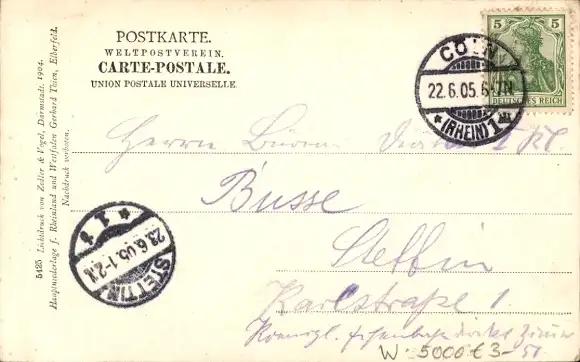 POSTKARTE.
WELTPOSTVEREIN.
CARTE-POSTALE.
UNION POSTALE UNIVERSELLE.
5 5
DEUTSCHES REICH
CÖLN
22.6.05.6-7N
* (RHEIN) 1
5425 Lichtdruck von Zedler & Vogel, Darmstadt. 1904.
Hauptniederlage f. Rheinland und Westfalen Gerhard Thien, Elberfeld.
Nachdruck verboten.
Herrn
Busse
Stettin
Karlstraße 1.
* 1
23.6.05.1-2N
STETTIN
W. 5000 € 3-